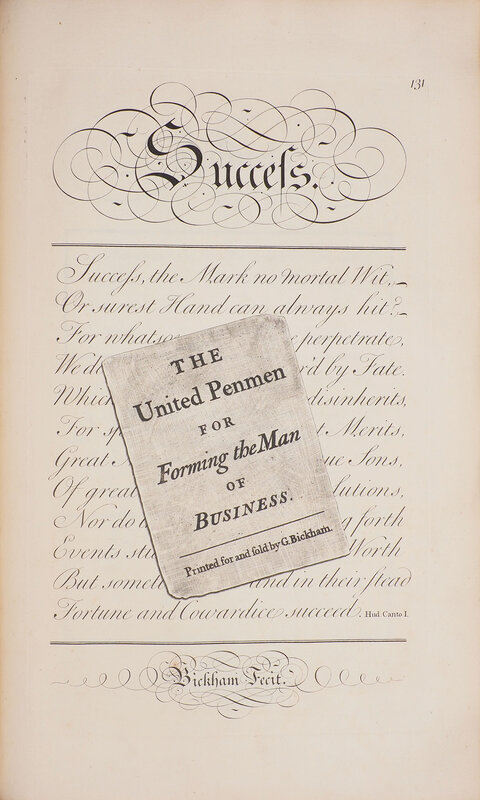 131
Succeſs.
Succeſs, the Mark no mortal Wit,
Or surest Hand can always hit?
For whatso perpetrate,
We do r'd by Fate.
Which disinherits,
For sp t Merits,
Great ue Sons,
Of great lutions,
Nor do g forth
Events Worth
But somet and in their ſtead
Fortune and Cowardice succeed. Hud: Canto I.
THE
United Penmen
FOR
Forming the Man
OF
BUSINESS.
Printed for and ſold by G. Bickham.
Bickham Fecit.